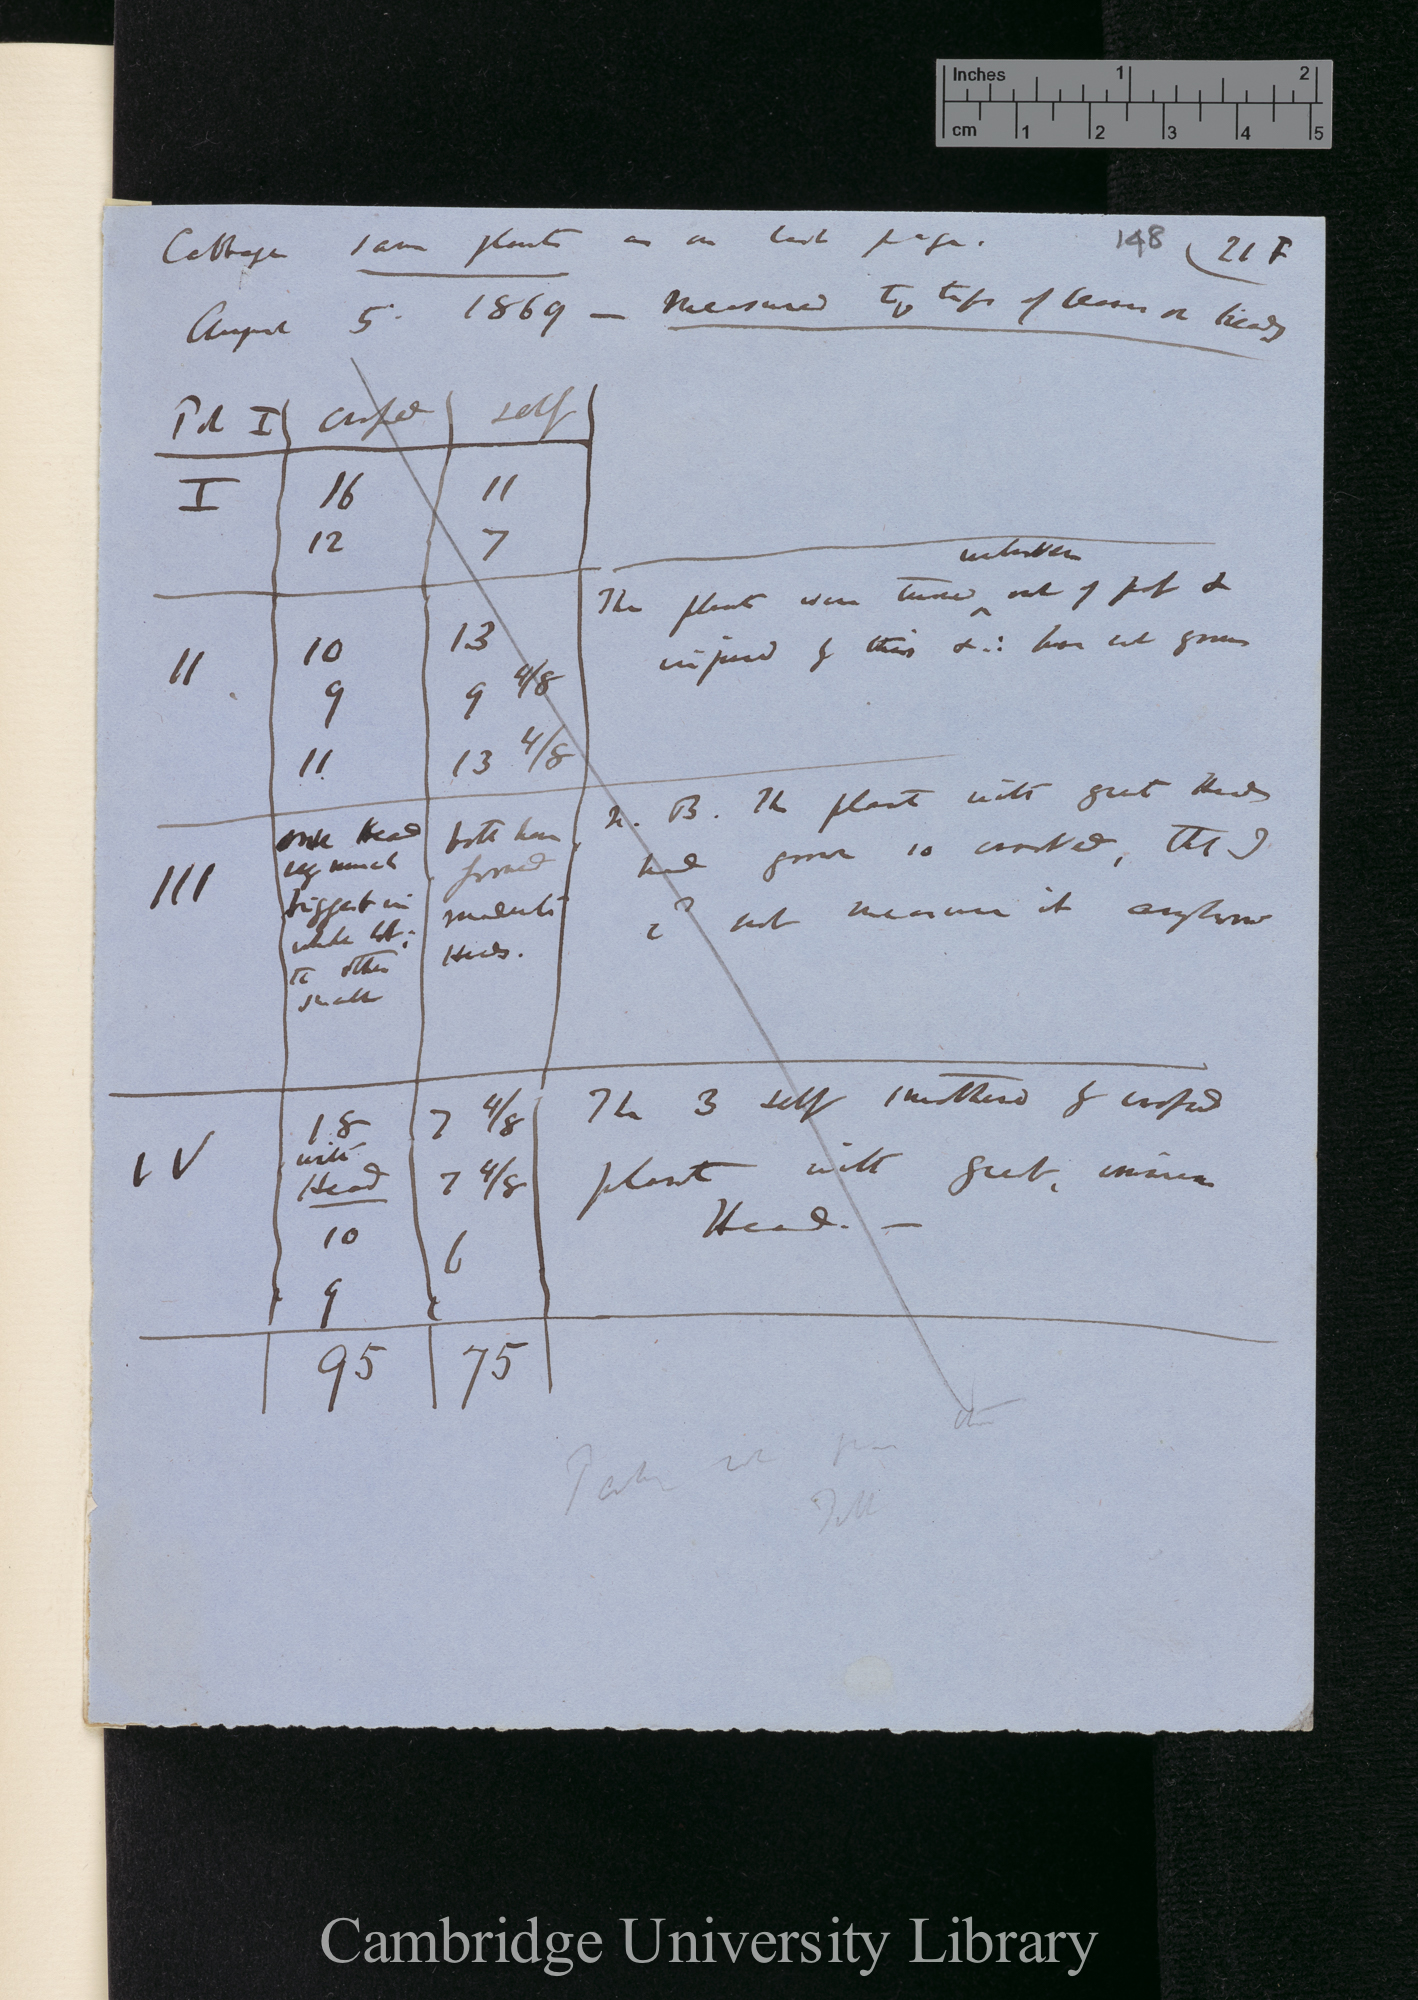 Inches 1 2
cm 1 2 3 4 5
Cabbage same plants as on last page. 148 21 F
August 5. 1869 — Measured to tips of leaves or heads
Pot I crossed self
I 16 11
12 7
II 10 13
9 9 4/8
11 13 4/8
The plants were turned out of pot &
injured by this & ∴ have not grown
III
one Head
very much
biggest in
whole lot;
other
smaller
both have
formed
moderate
Heads.
N. B. The plant with great Head
had grown so crooked, that I
cd not measure it anyhow
IV 18 7 4/8
with
Head 7 4/8
10 6
9
The 3 self smothered by crossed
plant with great,
Head. —
95 75
Cambridge University Library